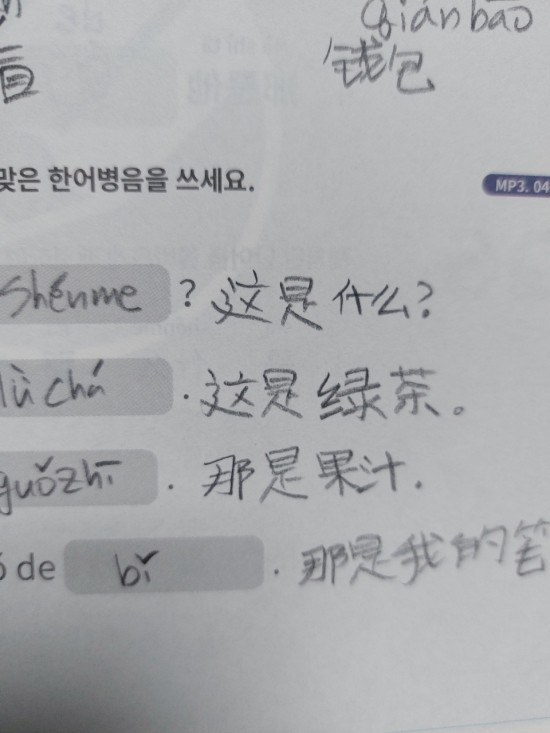 Qiánbāo
钱包
맞은 한어병음을 쓰세요.
MP3. 04
shénme ? 这是什么?
lǜ chá . 这是绿茶。
guǒzhī . 那是果汁.
de bǐ . 那是我的笔